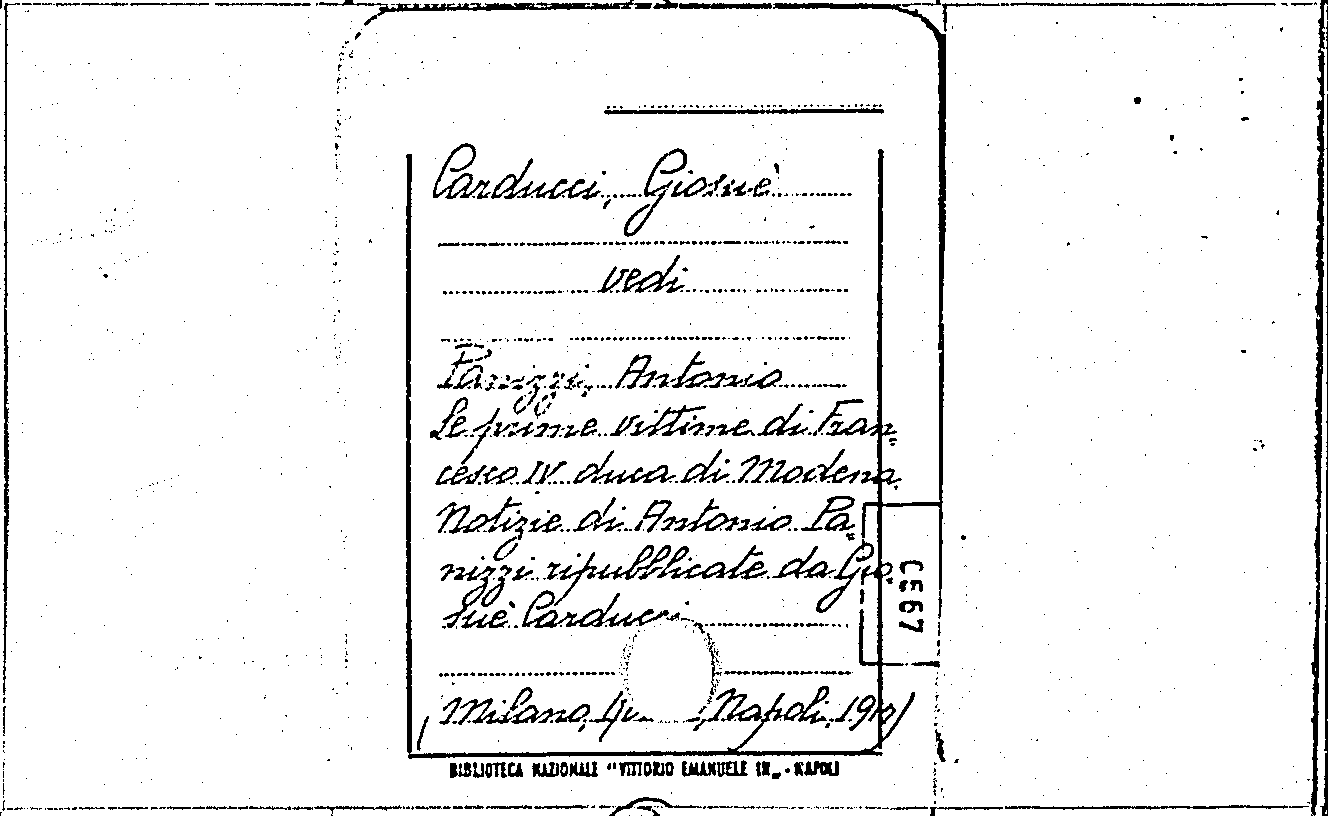 Carducci, Giosuè
vedi
Panizzi, Antonio
Le prime vittime di Fran„
cesco IV duca di Modena.
Notizie di Antonio Pa„
nizzi ripubblicate da Gio„
suè Carducci
(Milano, Napoli,
BIBLIOTECA NAZIONALE "VITTORIO EMANUELE III„ - NAPOLI